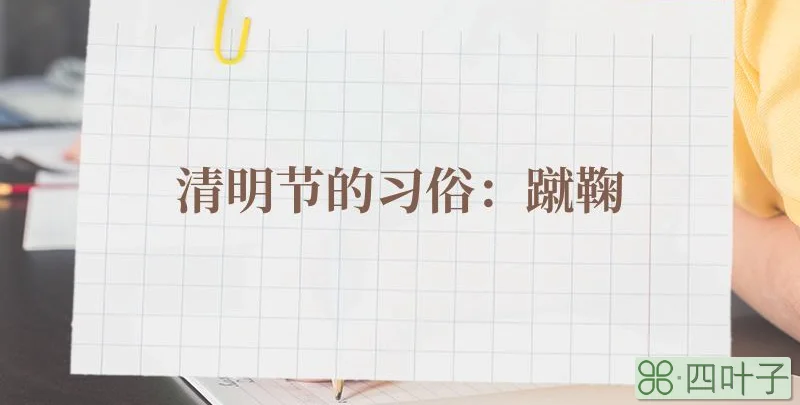 清明节的习俗：蹴鞠
四叶子